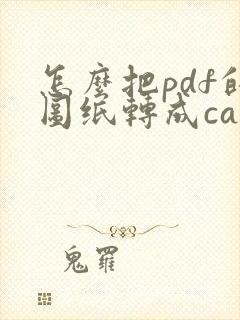 怎麼把pdf的
圖纸轉成ca
鬼羅